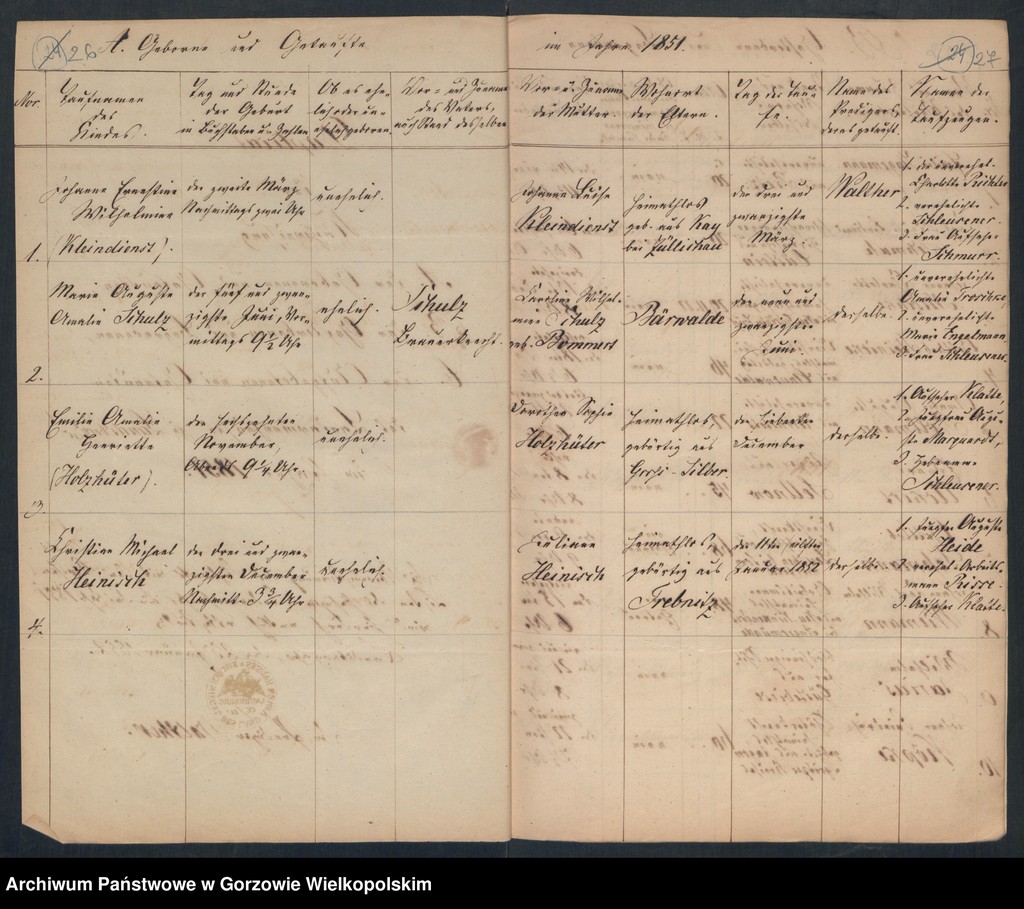 26
A. Geborne und Getaufte im Jahre 1851.
27
Nro.
Taufnamen
des
Kindes.
Tag und Stunde
der Geburt
in Buchstaben u. Zahlen
Ob es ehe-
lich oder un-
ehelich geboren.
Vor- und Zuname
des Vaters,
auch Stand desselben
Vor- u. Zuname
der Mutter.
Wohnort
der Eltern.
Tag der Tau-
fe.
Name des
Predigers,
der es getauft.
Namen der
Taufzeugen.
1.
Johanne Ernestine
Wilhelmine
(Kleindienst).
den zweite März
Nachmittags zwei Uhr
unehelich.
Johanne Luise
Kleindienst
heimathlos
geb. aus Kay
bei Züllichau
den drei und
zwanzigste
März.
Walther
1. die unverehel.
Charlotte Richter
2. verehelichte
Schleusener.
3. Frau Aufseher
Schmurr.
2.
Marie Auguste
Amalie Schulz
den fünf und zwan-
zigste Juni, Vor-
mittags 9 1/2 Uhr
ehelich.
Schulz
Brauerknecht.
Caroline Wilhel-
mine Schulz
geb. Bommert
Bärwalde
den neun und
zwanzigsten
Juni.
derselbe.
1. unverehelichte
Amalie
2. unverehelichte
Marie Engelmann
3. Frau Schleusener.
3.
Emilie Amalie
Henriette
(Holzhüter).
den sechszehnten
November,
9 1/4 Uhr.
unehelich.
Dorothee Sophie
Holzhüter
heimathlos
gebürtig aus
Gross-Silber.
den siebenten
December
derselbe.
1. Aufseher Klatte,
2. Jungfrau Augu-
ste Marquardt,
3. Hebamme
Schleusener.
4.
Christian Michael
Heinisch
den drei und zwan-
zigsten December
Nachmitt. 3 3/4 Uhr
unehelich.
Juliane
Heinisch
heimathlos,
gebürtig aus
Trebnitz
den
Januar 1852
derselbe.
1. Jungfer Auguste
Heide
2. verehel. Arbeits-
mann
3. Aufseher Klatte.
Archiwum Państwowe w Gorzowie Wielkopolskim